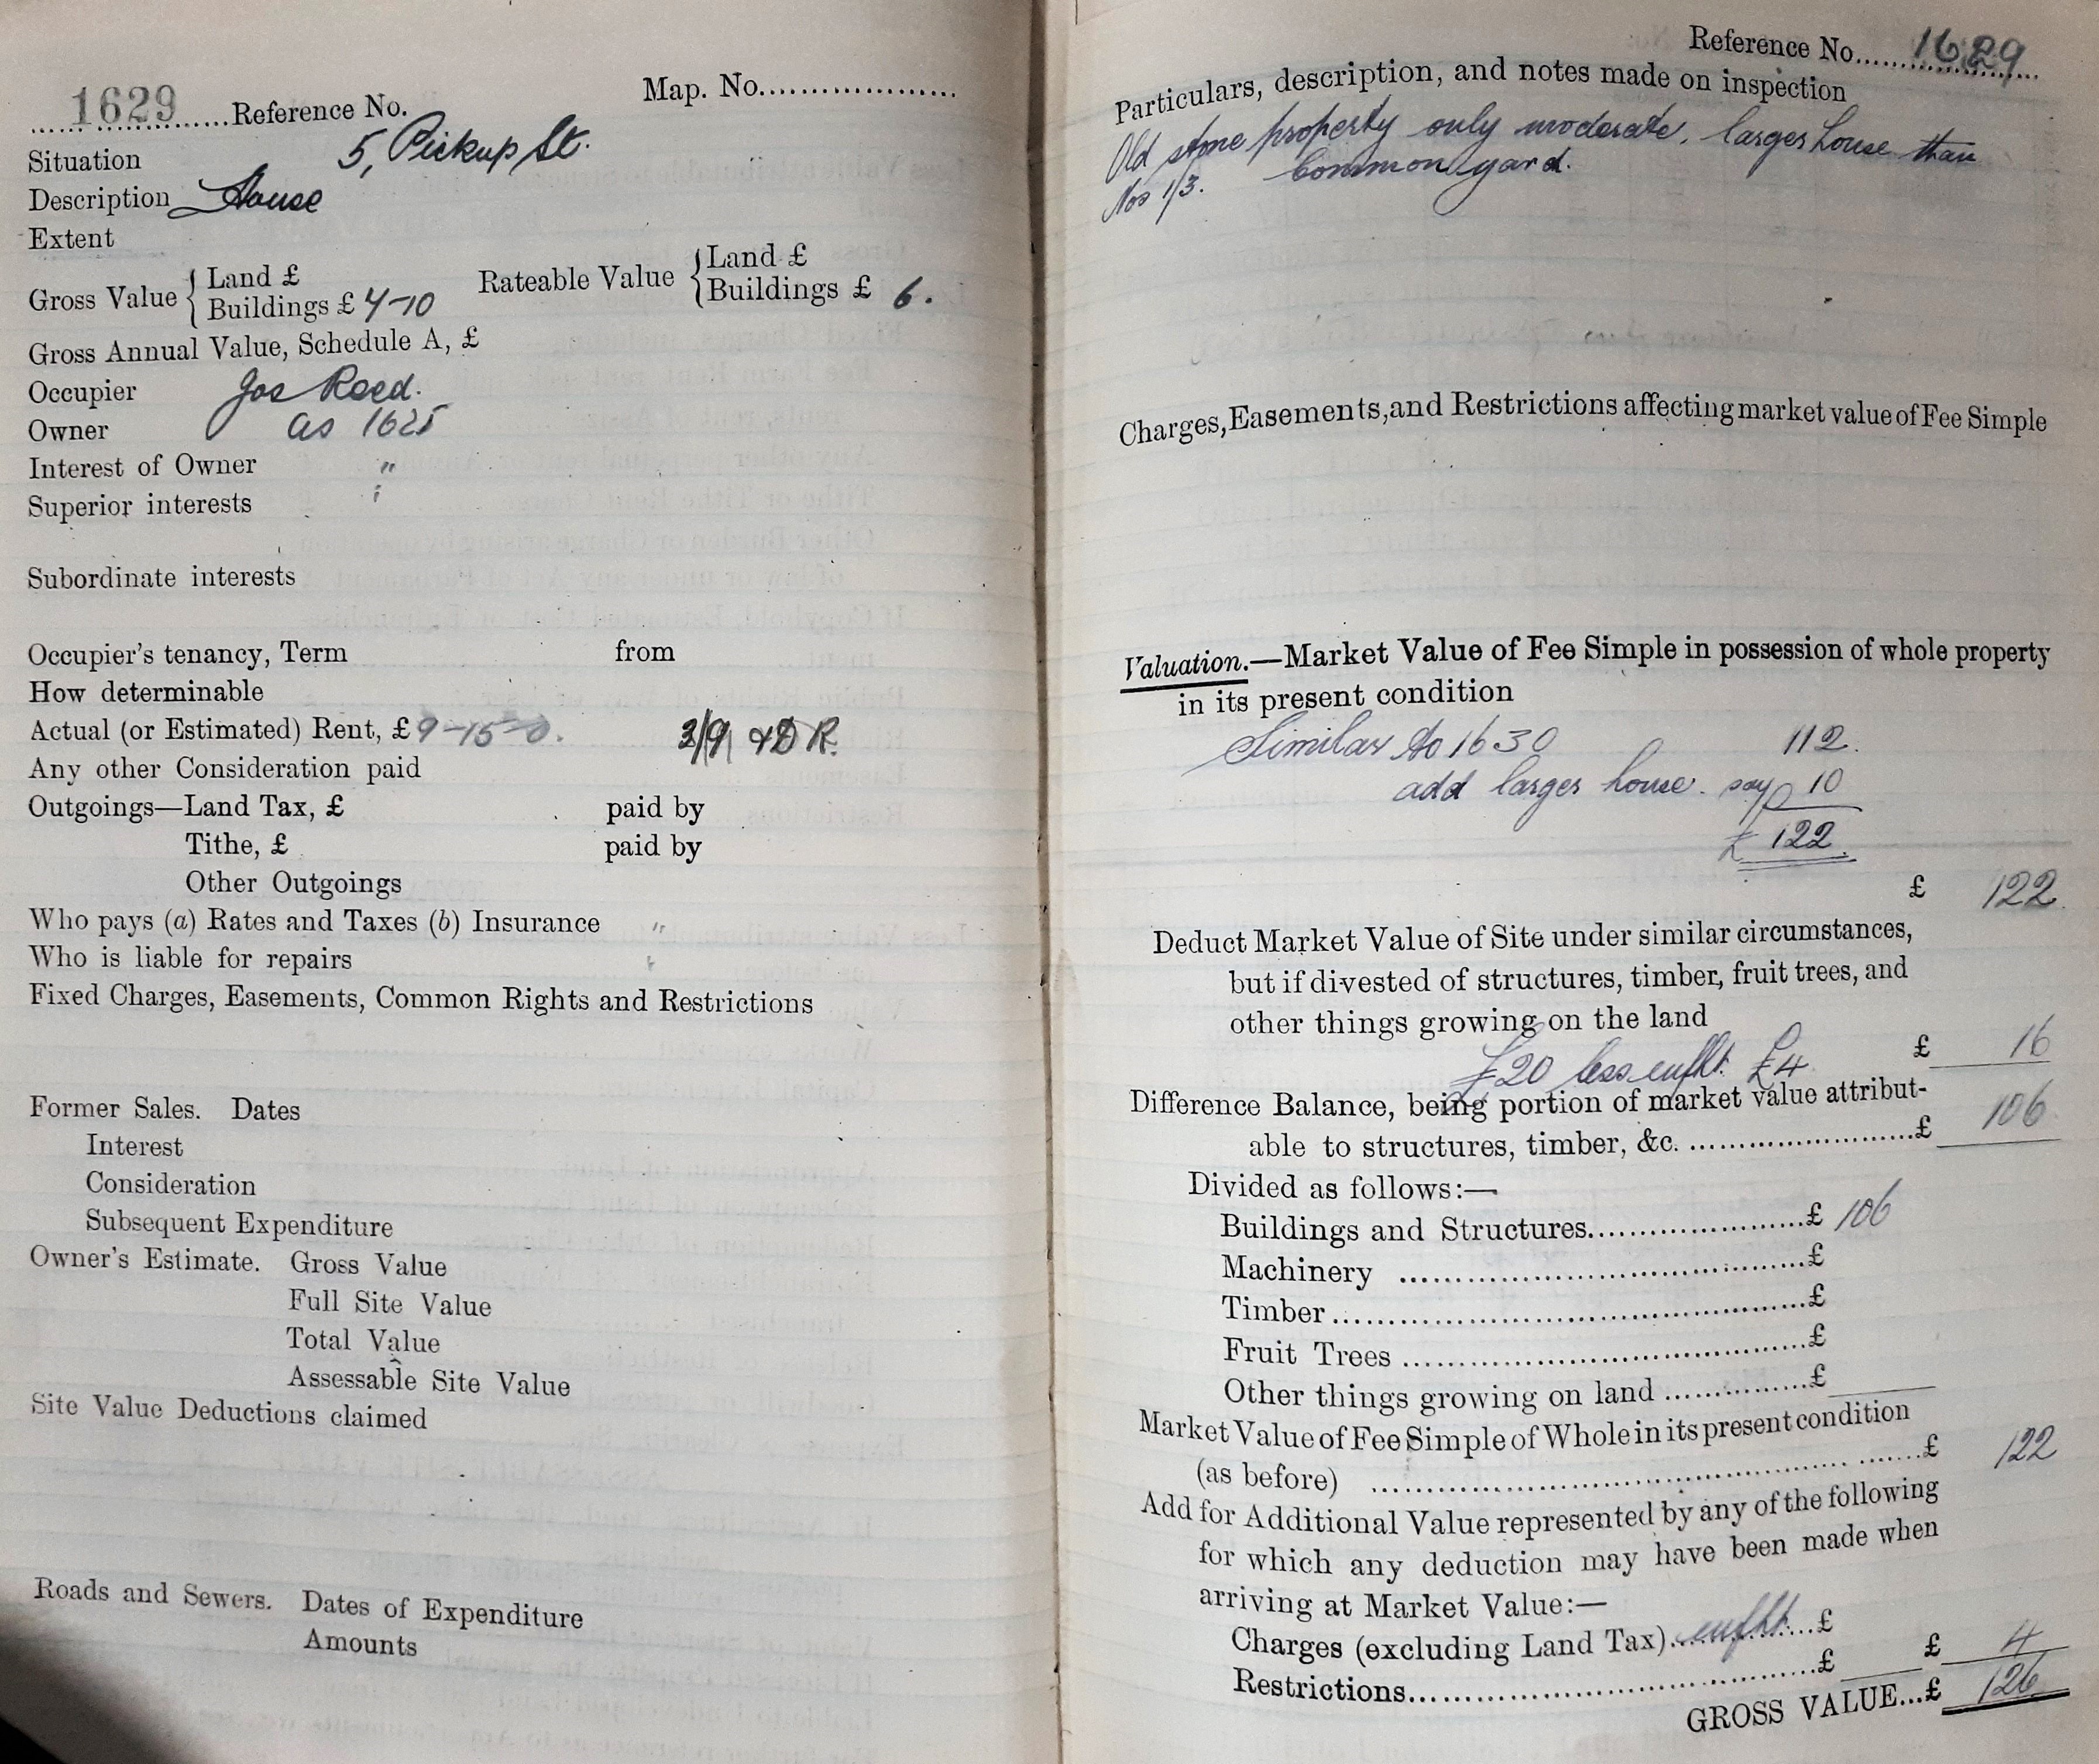 1629 Reference No. Map. No.
Situation 5, Pickup St.
Description House
Extent
Gross Value { Land £ Rateable Value { Land £
Buildings £ 7-10 Buildings £ 6.
Gross Annual Value, Schedule A, £
Occupier Jos Reed.
Owner as 1625
Interest of Owner "
Superior interests
Subordinate interests
Occupier's tenancy, Term from
How determinable
Actual (or Estimated) Rent, £ 9-15-0. 3/9 & D R.
Any other Consideration paid
Outgoings—Land Tax, £ paid by
Tithe, £ paid by
Other Outgoings
Who pays (a) Rates and Taxes (b) Insurance "
Who is liable for repairs
Fixed Charges, Easements, Common Rights and Restrictions
Former Sales. Dates
Interest
Consideration
Subsequent Expenditure
Owner's Estimate. Gross Value
Full Site Value
Total Value
Assessable Site Value
Site Value Deductions claimed
Roads and Sewers. Dates of Expenditure
Amounts
Reference No. 1629
Particulars, description, and notes made on inspection
Old stone property only moderate, larger house than
Nos 1/3. Common yard.
Charges, Easements, and Restrictions affecting market value of Fee Simple
Valuation.—Market Value of Fee Simple in possession of whole property
in its present condition
Similar to 1630 112.
add larger house. say 10
£ 122.
£ 122.
Deduct Market Value of Site under similar circumstances,
but if divested of structures, timber, fruit trees, and
other things growing on the land
£20 less enfht. £4 £ 16
Difference Balance, being portion of market value attribut-
able to structures, timber, &c. £ 106
Divided as follows:—
Buildings and Structures £ 106
Machinery £
Timber £
Fruit Trees £
Other things growing on land £
Market Value of Fee Simple of Whole in its present condition
(as before) £ 122
Add for Additional Value represented by any of the following
for which any deduction may have been made when
arriving at Market Value:—
Charges (excluding Land Tax) enfht. £
Restrictions £ £ 4
GROSS VALUE...£ 126